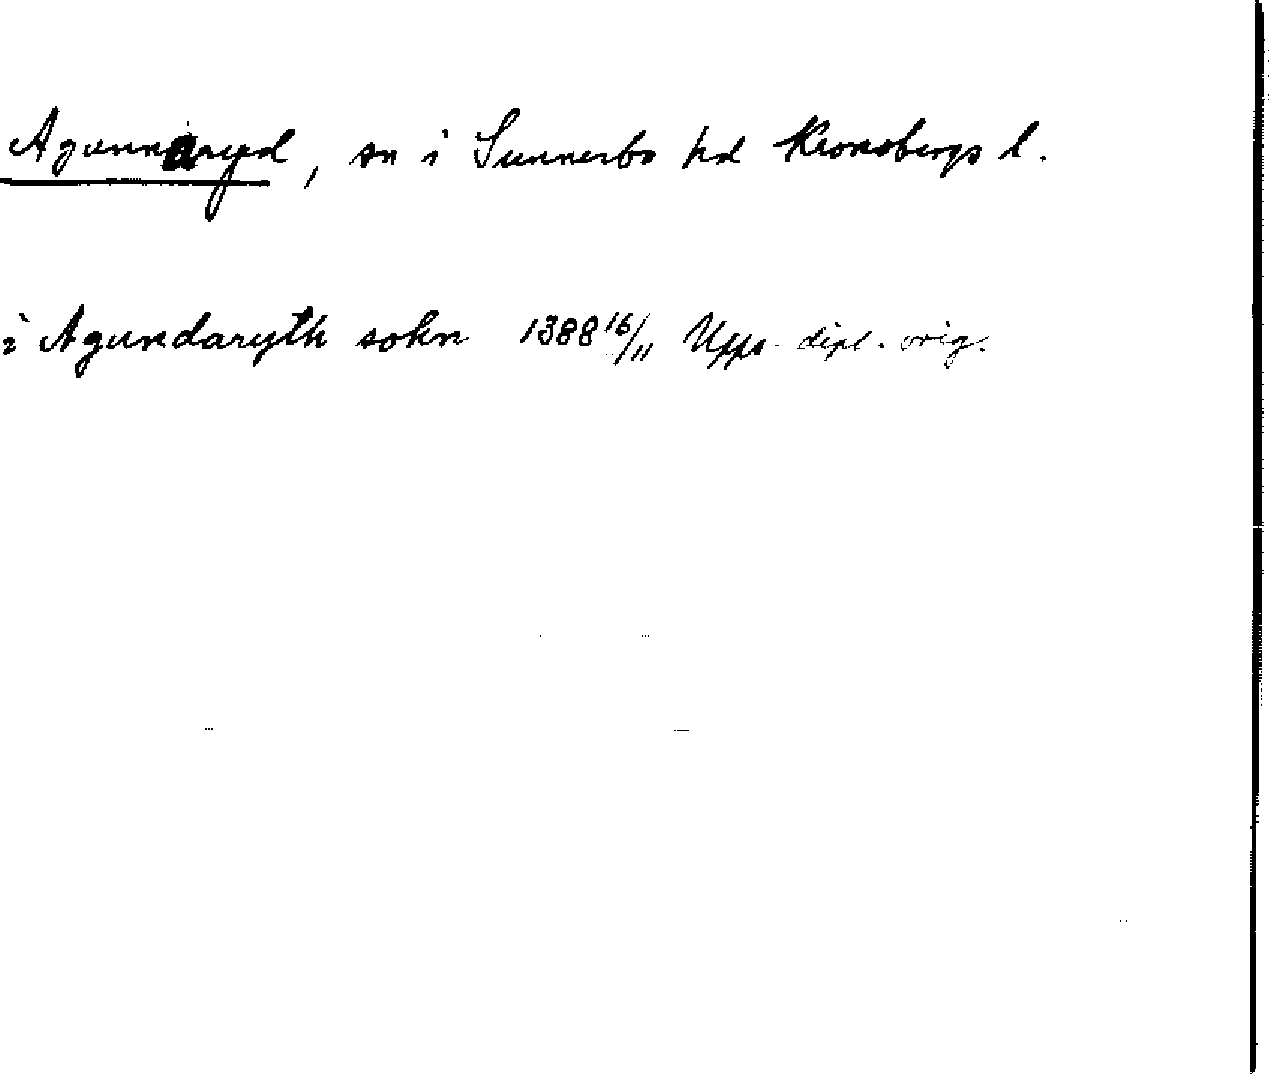 Agunnaryd, sn i Sunnerbo hd Kronobergs l.
i Agundaryth sokn 1388 16/11 Upps. dipl. orig.